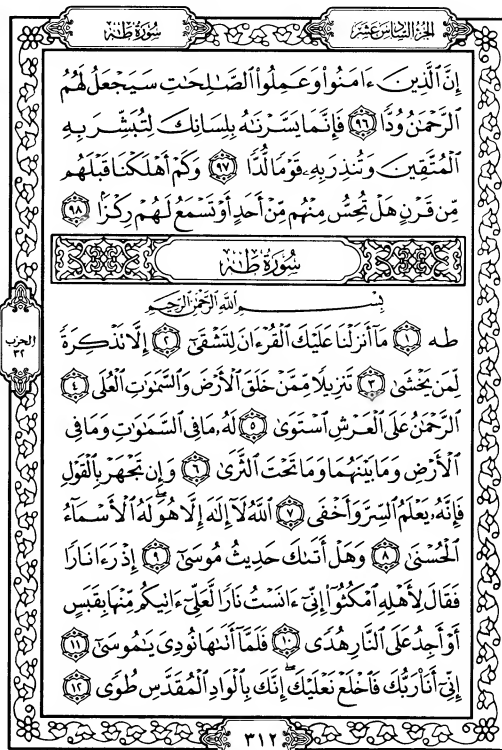 سُورَةُ طه
الجُزءُ السَّادِسَ عَشَرَ
إِنَّ ٱلَّذِينَ ءَامَنُوا۟ وَعَمِلُوا۟ ٱلصَّـٰلِحَـٰتِ سَيَجْعَلُ لَهُمُ
ٱلرَّحْمَـٰنُ وُدًّا ٩٦ فَإِنَّمَا يَسَّرْنَـٰهُ بِلِسَانِكَ لِتُبَشِّرَ بِهِ
ٱلْمُتَّقِينَ وَتُنذِرَ بِهِۦ قَوْمًا لُّدًّا ٩٧ وَكَمْ أَهْلَكْنَا قَبْلَهُم
مِّن قَرْنٍ هَلْ تُحِسُّ مِنْهُم مِّنْ أَحَدٍ أَوْ تَسْمَعُ لَهُمْ رِكْزًۢا ٩٨
سُورَةُ طه
بِسْمِ ٱللَّهِ ٱلرَّحْمَـٰنِ ٱلرَّحِيمِ
طه ١ مَآ أَنزَلْنَا عَلَيْكَ ٱلْقُرْءَانَ لِتَشْقَىٰٓ ٢ إِلَّا تَذْكِرَةً
لِّمَن يَخْشَىٰ ٣ تَنزِيلًا مِّمَّنْ خَلَقَ ٱلْأَرْضَ وَٱلسَّمَـٰوَٰتِ ٱلْعُلَى ٤
ٱلرَّحْمَـٰنُ عَلَى ٱلْعَرْشِ ٱسْتَوَىٰ ٥ لَهُۥ مَا فِى ٱلسَّمَـٰوَٰتِ وَمَا فِى
ٱلْأَرْضِ وَمَا بَيْنَهُمَا وَمَا تَحْتَ ٱلثَّرَىٰ ٦ وَإِن تَجْهَرْ بِٱلْقَوْلِ
فَإِنَّهُۥ يَعْلَمُ ٱلسِّرَّ وَأَخْفَى ٧ ٱللَّهُ لَآ إِلَـٰهَ إِلَّا هُوَ ۖ لَهُ ٱلْأَسْمَآءُ
ٱلْحُسْنَىٰ ٨ وَهَلْ أَتَىٰكَ حَدِيثُ مُوسَىٰٓ ٩ إِذْ رَءَا نَارًا
فَقَالَ لِأَهْلِهِ ٱمْكُثُوٓا۟ إِنِّىٓ ءَانَسْتُ نَارًا لَّعَلِّىٓ ءَاتِيكُم مِّنْهَا بِقَبَسٍ
أَوْ أَجِدُ عَلَى ٱلنَّارِ هُدًى ١٠ فَلَمَّآ أَتَىٰهَا نُودِىَ يَـٰمُوسَىٰٓ ١١
إِنِّىٓ أَنَا۠ رَبُّكَ فَٱخْلَعْ نَعْلَيْكَ ۖ إِنَّكَ بِٱلْوَادِ ٱلْمُقَدَّسِ طُوًى ١٢
الحزب
٣٢
٣١٢